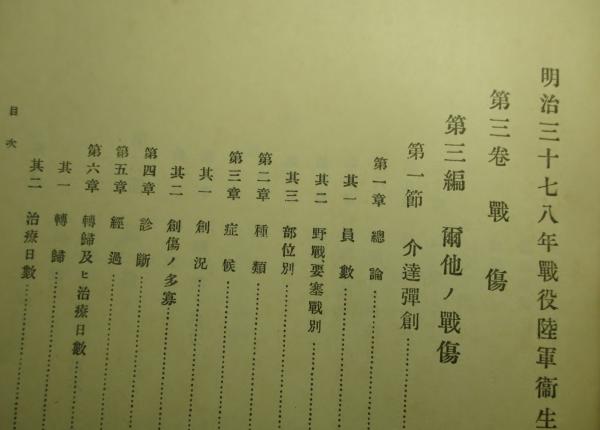 明治三十七八年戰役陸軍衞生
第三卷 戰傷
第三編 爾他ノ戰傷
第一節 介達彈創
第一章 總論
其一 員數
其二 野戰、要塞戰別
其三 部位別
第二章 種類
第三章 症候
其一 創況
其二 創傷ノ多寡
第四章 診斷
第五章 經過
第六章 轉歸及ヒ治療日數
其一 轉歸
其二 治療日數
目次